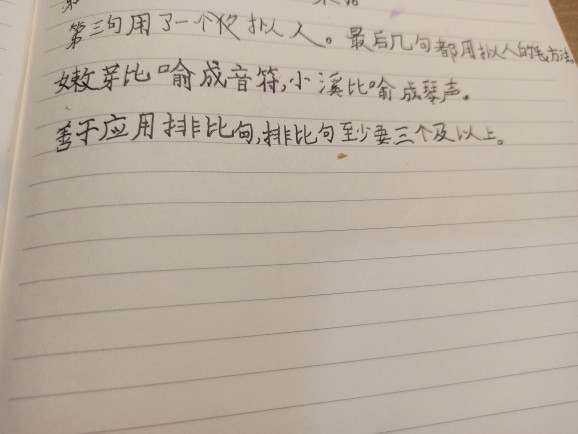 第三句用了一个 拟人。最后几句都用拟人的 方法。
嫩芽比喻成音符,小溪比喻成琴声。
善于应用排比句,排比句至少要三个及以上。